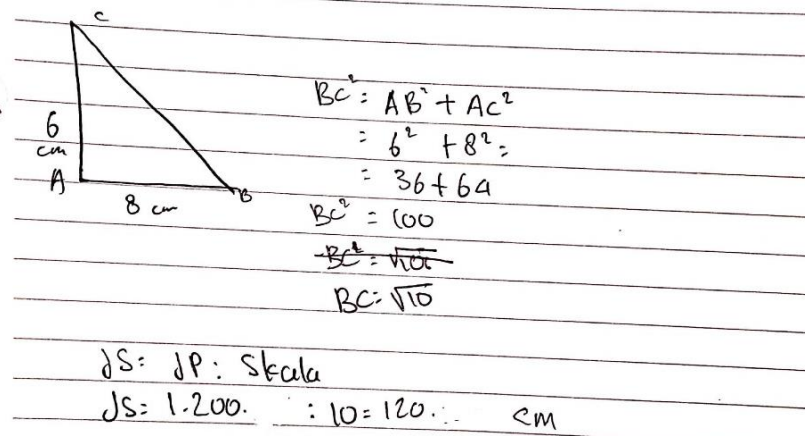 C
6
cm
A
8 cm
B
BC² = AB² + AC²
= 6² + 8² =
= 36 + 64
BC² = 100
BC² = √100
BC = √10
JS = JP : Skala
JS = 1.200. : 10 = 120... cm